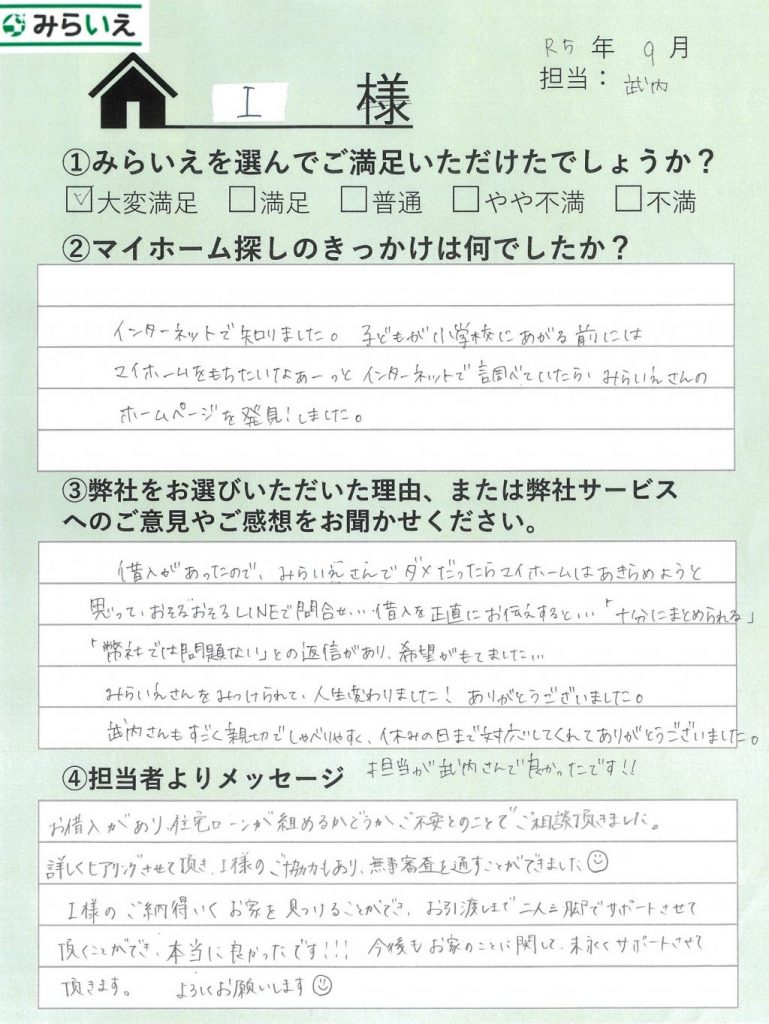 みらいえ
R5年 9月
担当： 武内
I 様
①みらいえを選んでご満足いただけたでしょうか？
☑大変満足 □満足 □普通 □やや不満 □不満
②マイホーム探しのきっかけは何でしたか？
インターネットで知りました。子どもが小学校にあがる前には
マイホームをもちたいなぁーっとインターネットで調べていたら、みらいえさんの
ホームページを発見!しました。
③弊社をお選びいただいた理由、または弊社サービス
へのご意見やご感想をお聞かせください。
借入があったので、みらいえさんでダメだったらマイホームはあきらめようと
思って、おそるおそるLINEで問合せ… 借入を正直にお伝えすると…「十分にまとめられる」
「弊社では問題ない」との返信があり、希望がもてました…
みらいえさんをみつけられて、人生変わりました! ありがとうございました。
武内さんもすごく親切でしゃべりやすく、休みの日まで対応してくれてありがとうございました。
担当が武内さんで良かったです!!
④担当者よりメッセージ
お借入があり、住宅ローンが組めるかどうかご不安とのことでご相談頂きました。
詳しくヒアリングさせて頂き、I様のご協力もあり、無事審査を通すことができました☺
I様のご納得いくお家を見つけることができ、お引渡しまで二人三脚でサポートさせて
頂くことができ、本当に良かったです!!! 今後もお家のことに関して、末永くサポートさせて
頂きます。 よろしくお願いします☺